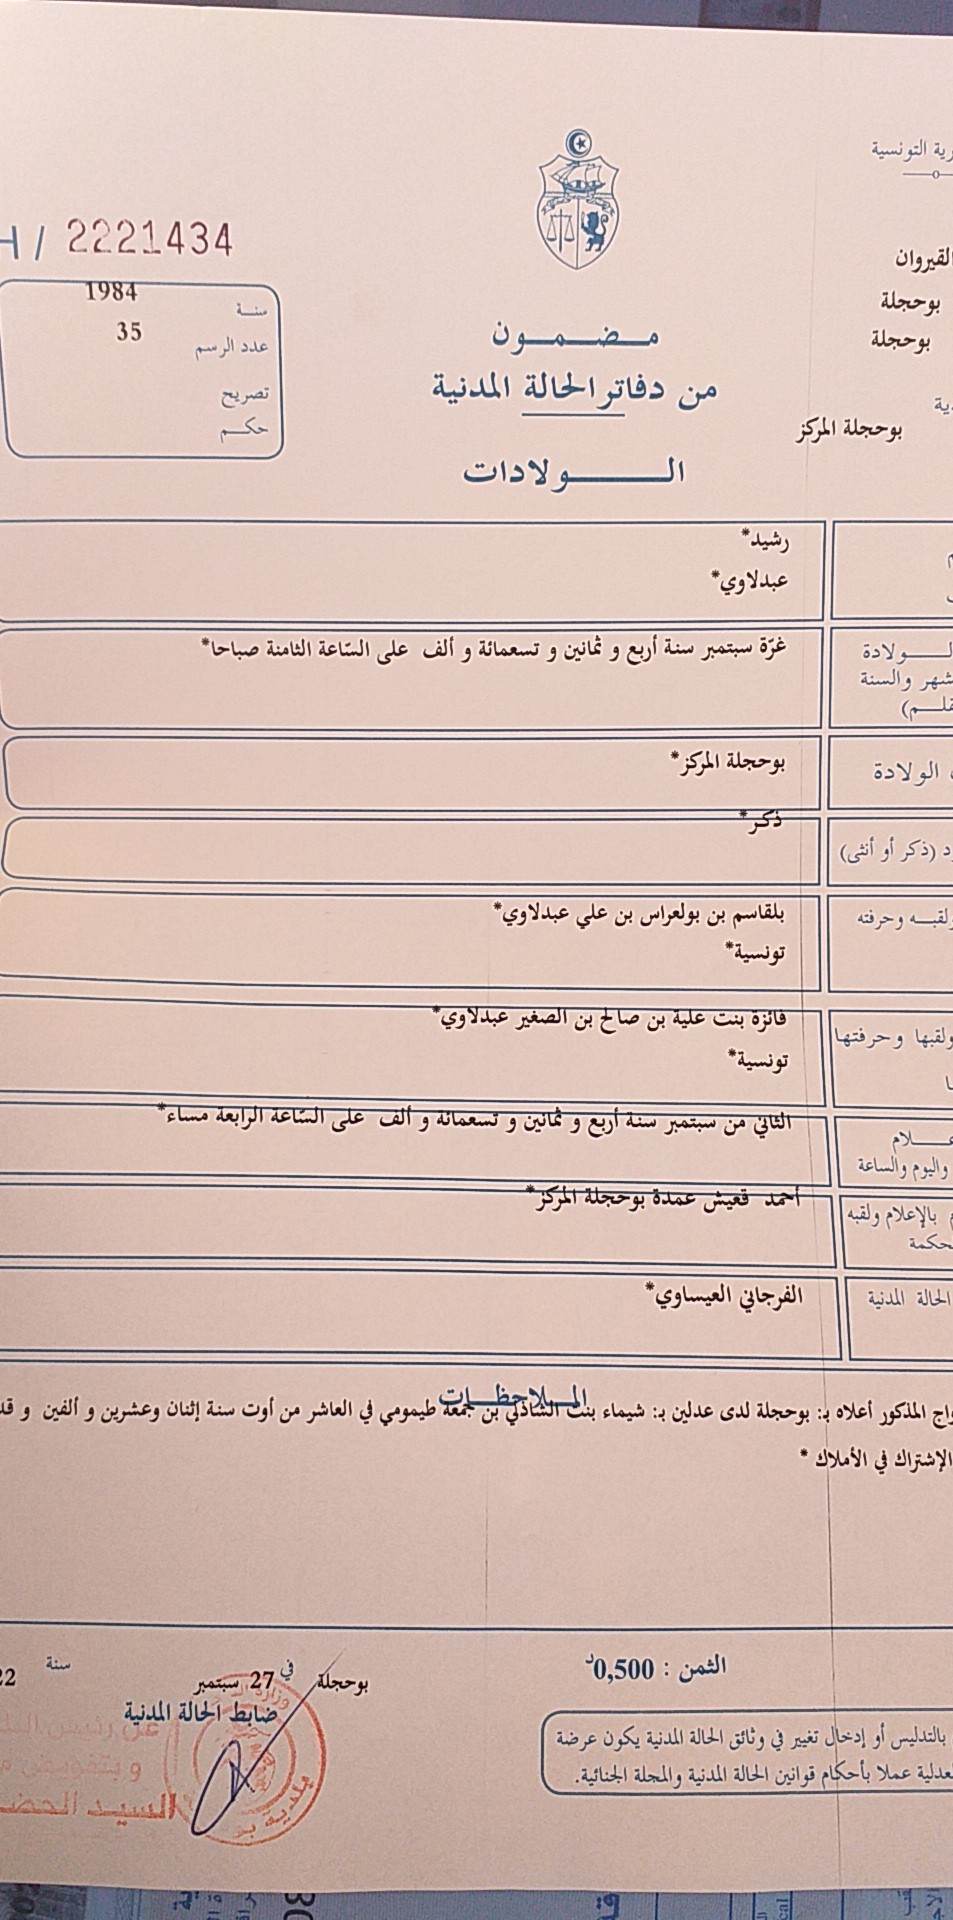 رية التونسية
القيروان
بوحجلة
بوحجلة
بوحجلة المركز
H / 2221434
سنة 1984
عدد الرسم 35
تصريح
حكم
مضمون
من دفاتر الحالة المدنية
الولادات
رشيد*
عبدلاوي*
الولادة
شهر والسنة
قلم)
غرّة سبتمبر سنة أربع و ثمانين و تسعمائة و ألف على السّاعة الثامنة صباحا*
الولادة
بوحجلة المركز*
د (ذكر أو أنثى)
ذكر*
ولقبه وحرفته
بلقاسم بن بولعراس بن علي عبدلاوي*
تونسية*
ولقبها وحرفتها
فائزة بنت علية بن صالح بن الصغير عبدلاوي*
تونسية*
علام
واليوم والساعة
الثاني من سبتمبر سنة أربع و ثمانين و تسعمائة و ألف على السّاعة الرابعة مساء*
م بالإعلام ولقبه
حكمة
أحمد قعيش عمدة بوحجلة المركز*
الحالة المدنية
الفرجاني العيساوي*
الملاحظات
واج المذكور أعلاه بـ: بوحجلة لدى عدلين بـ: شيماء بنت الشاذلي بن جمعة طيمومي في العاشر من أوت سنة إثنان وعشرين و ألفين و قد
الإشتراك في الأملاك *
الثمن : 0,500د
بوحجلة في 27 سبتمبر سنة 22
ضابط الحالة المدنية
بالتدليس أو إدخال تغيير في وثائق الحالة المدنية يكون عرضة
لعدلية عملا بأحكام قوانين الحالة المدنية والمجلة الجنائية.
عن رئيس البل
و بتفويض م
السيد الحض
بلدية بو